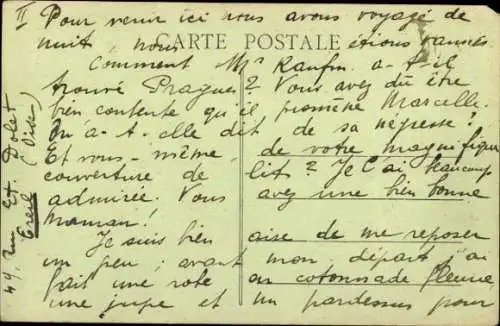 II Pour venir ici nous avons voyagé de
nuit, nous étions
CARTE POSTALE
Comment Mr Kaufm. a-t-il
trouvé Prague? Vous avez dû être
bien contente qu'il promène Marcelle.
Qu'a-t-elle dit de sa négresse?
Et vous-même, de votre magnifique
couverture de lit? Je l'ai beaucoup
admirée. Vous avez une bien bonne
Maman!
Je suis bien aise de me reposer
un peu; avant mon départ j'ai
fait une robe en cotonnade fleurie,
une jupe et un pardessus pour
49, rue Et. Dolet
Creil (Oise)